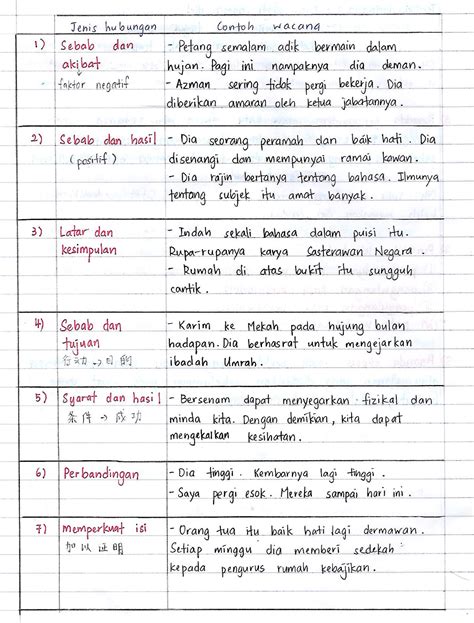 Jenis hubungan Contoh wacana
1) Sebab dan - Petang semalam adik bermain dalam
akibat hujan. Pagi ini nampaknya dia deman.
faktor negatif - Azman sering tidak pergi bekerja. Dia
diberikan amaran oleh ketua jabatannya.
2) Sebab dan hasil - Dia seorang peramah dan baik hati. Dia
(positif) disenangi dan mempunyai ramai kawan.
- Dia rajin bertanya tentang bahasa. Ilmunya
tentang subjek itu amat banyak.
3) Latar dan - Indah sekali bahasa dalam puisi itu.
kesimpulan Rupa-rupanya karya Sasterawan Negara.
- Rumah di atas bukit itu sungguh
cantik.
4) Sebab dan - Karim ke Mekah pada hujung bulan
tujuan hadapan. Dia berhasrat untuk mengejarkan
行动 → 目的 ibadah Umrah.
5) Syarat dan hasil - Bersenam dapat menyegarkan fizikal dan
条件 → 成功 minda kita. Dengan demikian, kita dapat
mengekalkan kesihatan.
6) Perbandingan - Dia tinggi. Kembarnya lagi tinggi.
- Saya pergi esok. Mereka sampai hari ini.
7) Memperkuat isi - Orang tua itu baik hati lagi dermawan.
加以证明 Setiap minggu dia memberi sedekah
kepada pengurus rumah kebajikan.